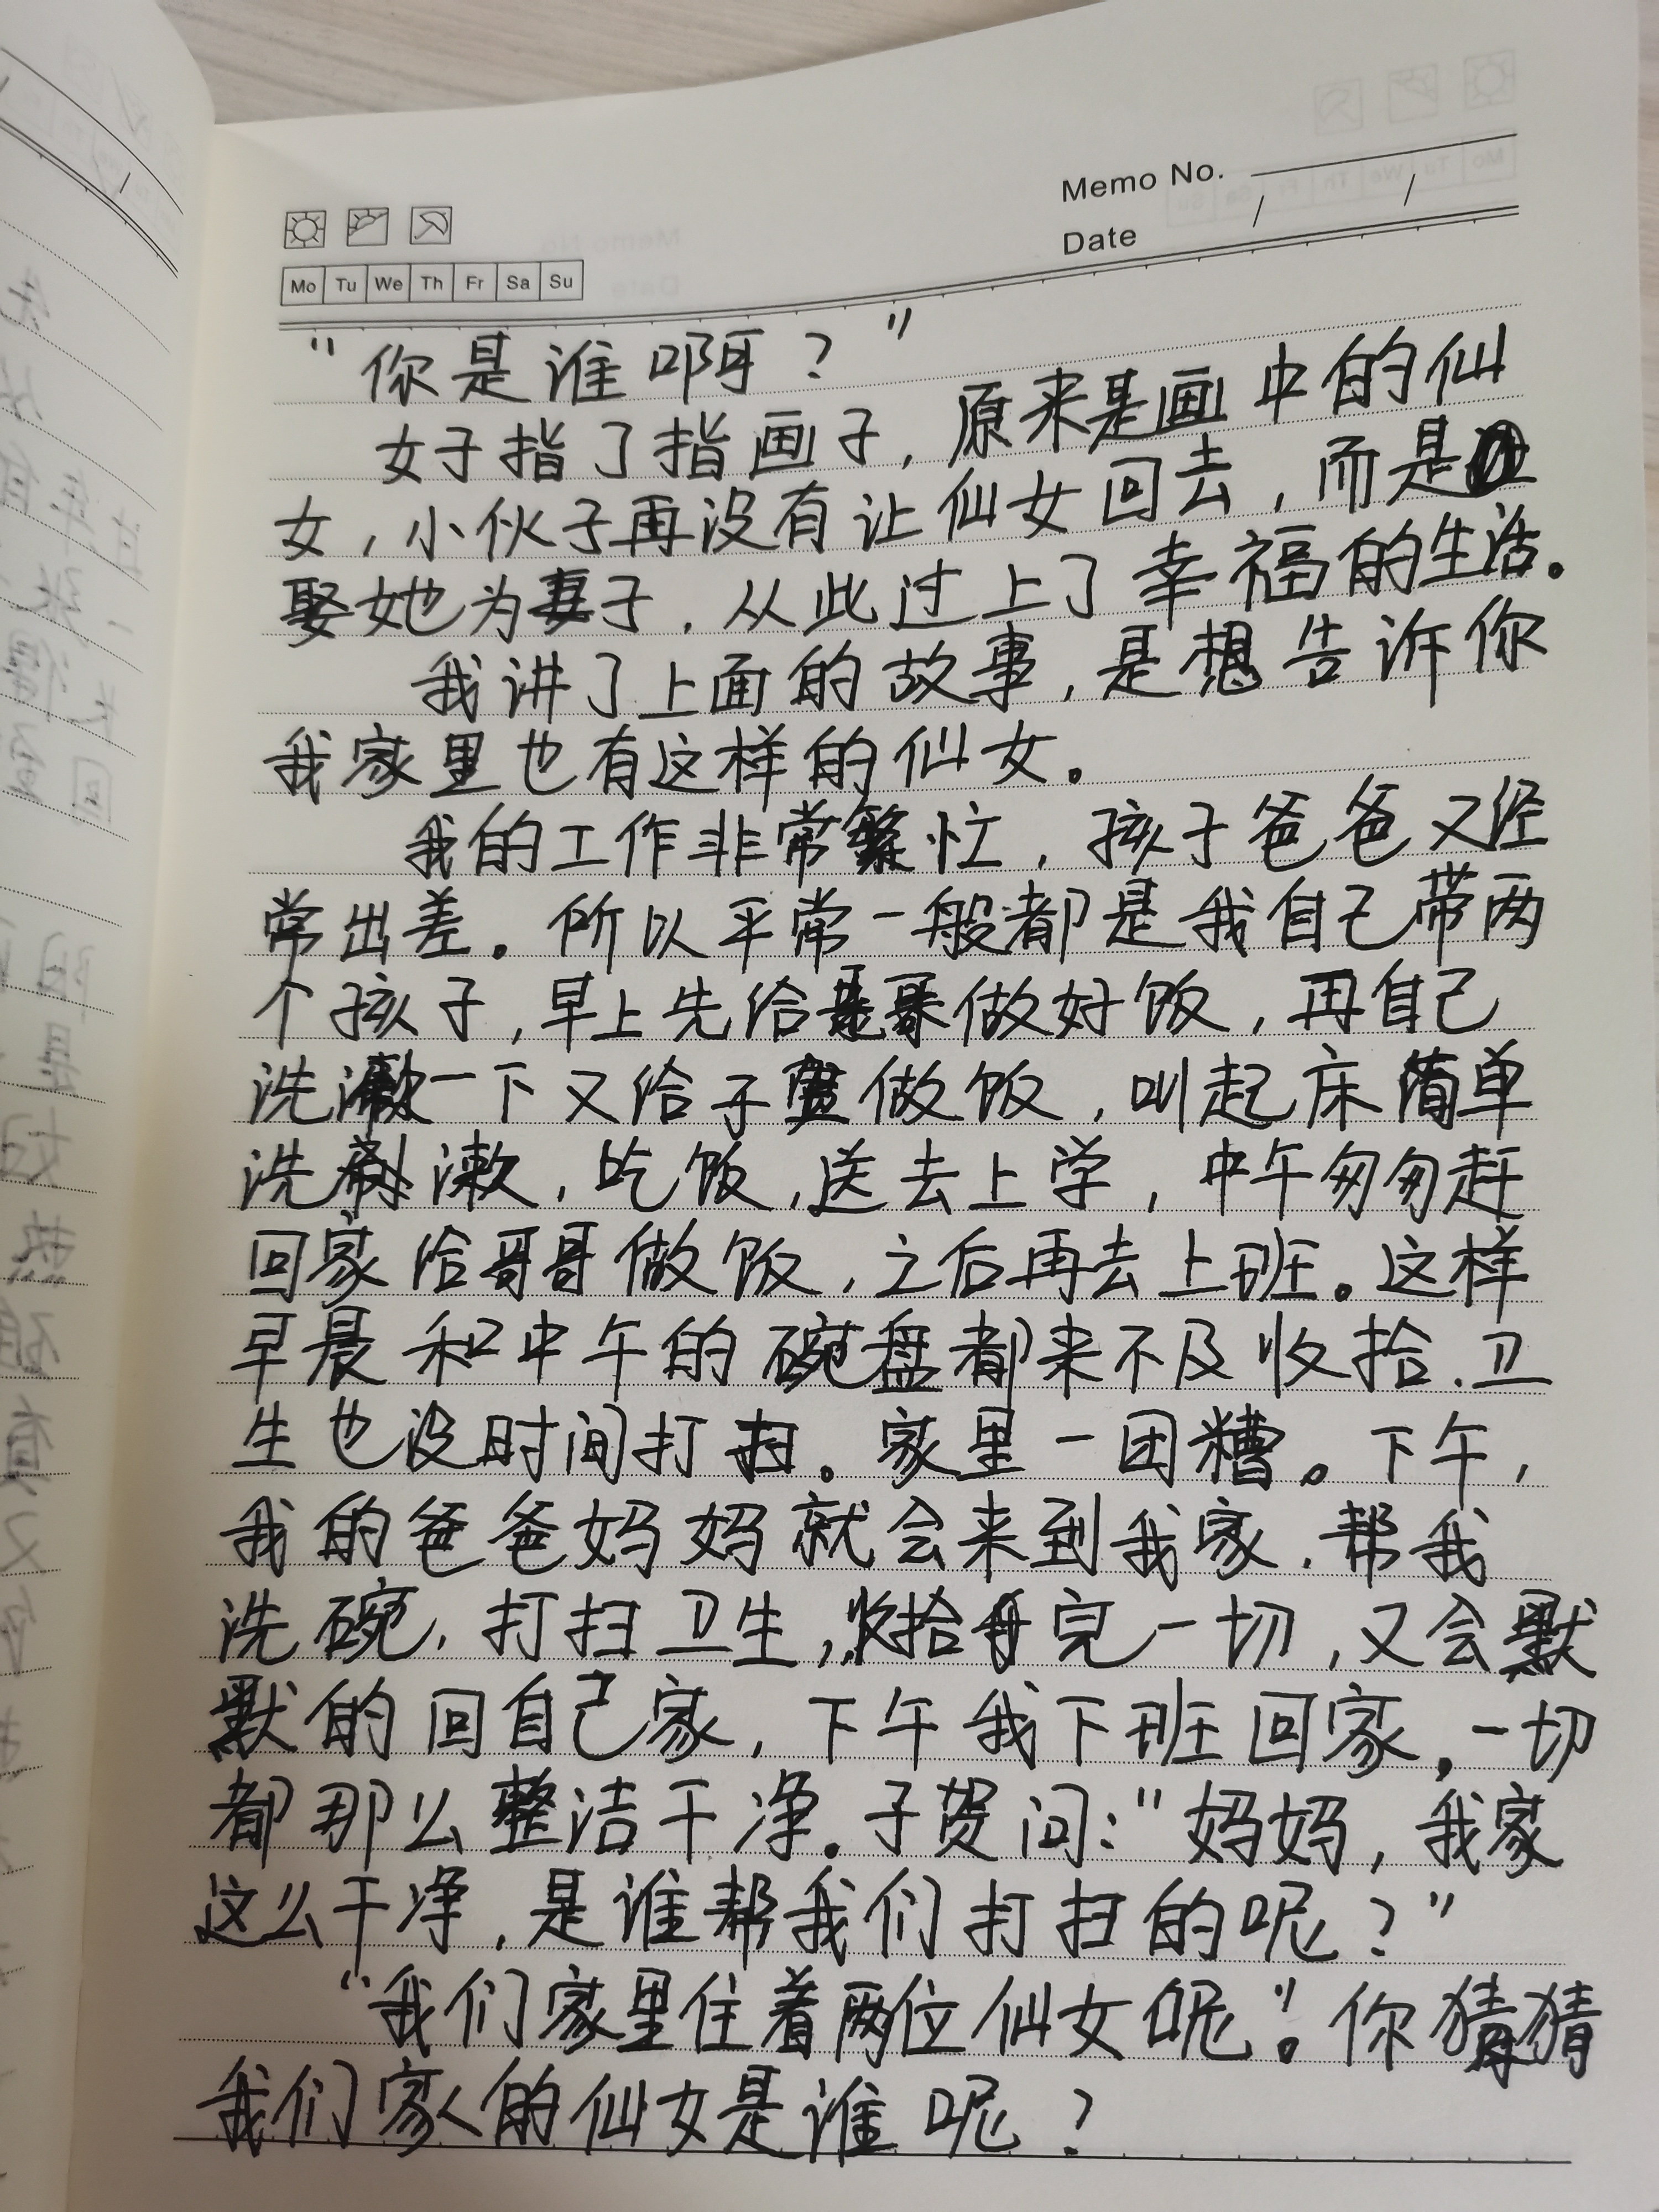 Memo No.
Date / /
Mo Tu We Th Fr Sa Su
“你是谁啊？”
女子指了指画子，原来是画中的仙
女，小伙子再没有让仙女回去，而是
娶她为妻子，从此过上了幸福的生活。
我讲了上面的故事，是想告诉你
我家里也有这样的仙女。
我的工作非常繁忙，孩子爸爸又经
常出差。所以平常一般都是我自己带两
个孩子，早上先给哥哥做好饭，再自己
洗漱一下又给子贺做饭，叫起床简单
洗漱，吃饭，送去上学，中午匆匆赶
回家给哥哥做饭，之后再去上班。这样
早晨和中午的碗盘都来不及收拾.卫
生也没时间打扫。家里一团糟。下午，
我的爸爸妈妈就会来到我家.帮我
洗碗，打扫卫生，收拾完一切，又会默
默的回自己家，下午我下班回家，一切
都那么整洁干净.子贺问：“妈妈，我家
这么干净，是谁帮我们打扫的呢？”
“我们家里住着两位仙女呢”。你猜猜
我们家的仙女是谁呢？